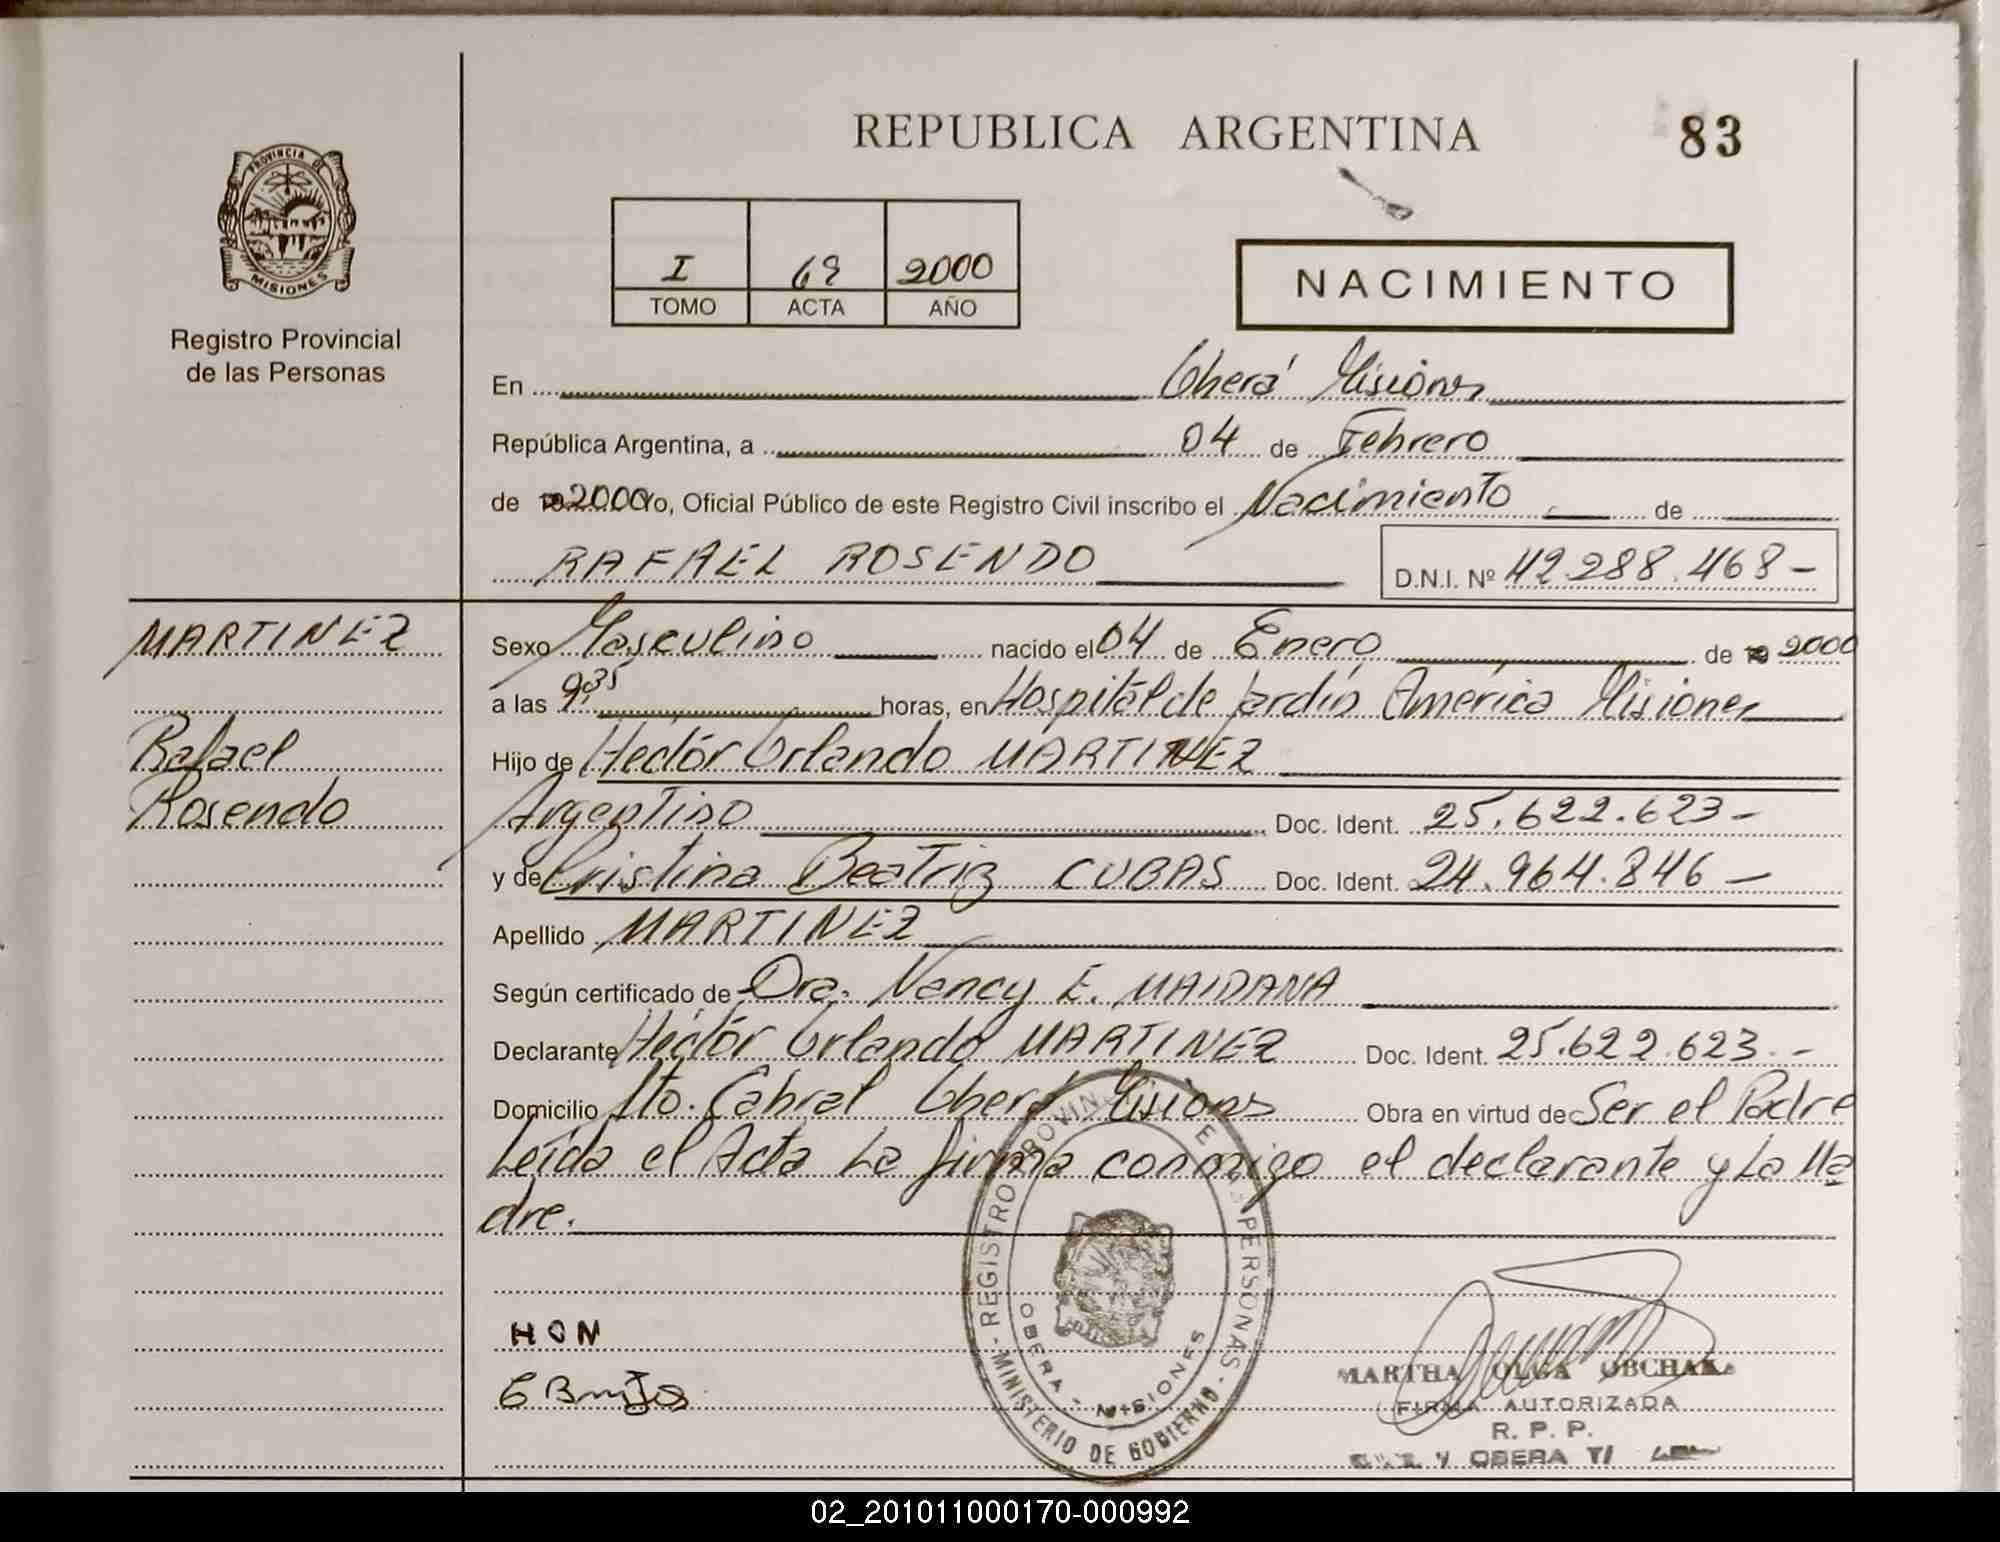 REPUBLICA ARGENTINA
83
PROVINCIA DE
MISIONES
Registro Provincial
de las Personas
I 69 2000
TOMO ACTA AÑO
NACIMIENTO
En Oberá Misiones
República Argentina, a 04 de Febrero
de 19 2000 Yo, Oficial Público de este Registro Civil inscribo el Nacimiento de
RAFAEL ROSENDO D.N.I. Nº 42.288.468-
MARTINEZ
Rafael
Rosendo
Sexo Masculino nacido el 04 de Enero de 19 2000
a las 9,35 horas, en Hospital de Jardín América Misiones
Hijo de Hector Orlando MARTINEZ
Argentino Doc. Ident. 25.622.623-
y de Cristina Beatriz CUBAS Doc. Ident. 24.964.846-
Apellido MARTINEZ
Según certificado de Dra. Nancy E. MAIDANA
Declarante Hector Orlando MARTINEZ Doc. Ident. 25.622.623.-
Domicilio Sto. Cabral Oberá Misions Obra en virtud de Ser el Padre
Leída el Acta La firma conmigo el declarante y La Ma
dre.
REGISTRO PROVINCIAL DE LAS PERSONAS - MINISTERIO DE GOBIERNO -
OBERA - MISIONES
HOM
MARTHA OLGA OBCHAK
FIRMA AUTORIZADA
R. P. P.
OBERA
02_201011000170-000992